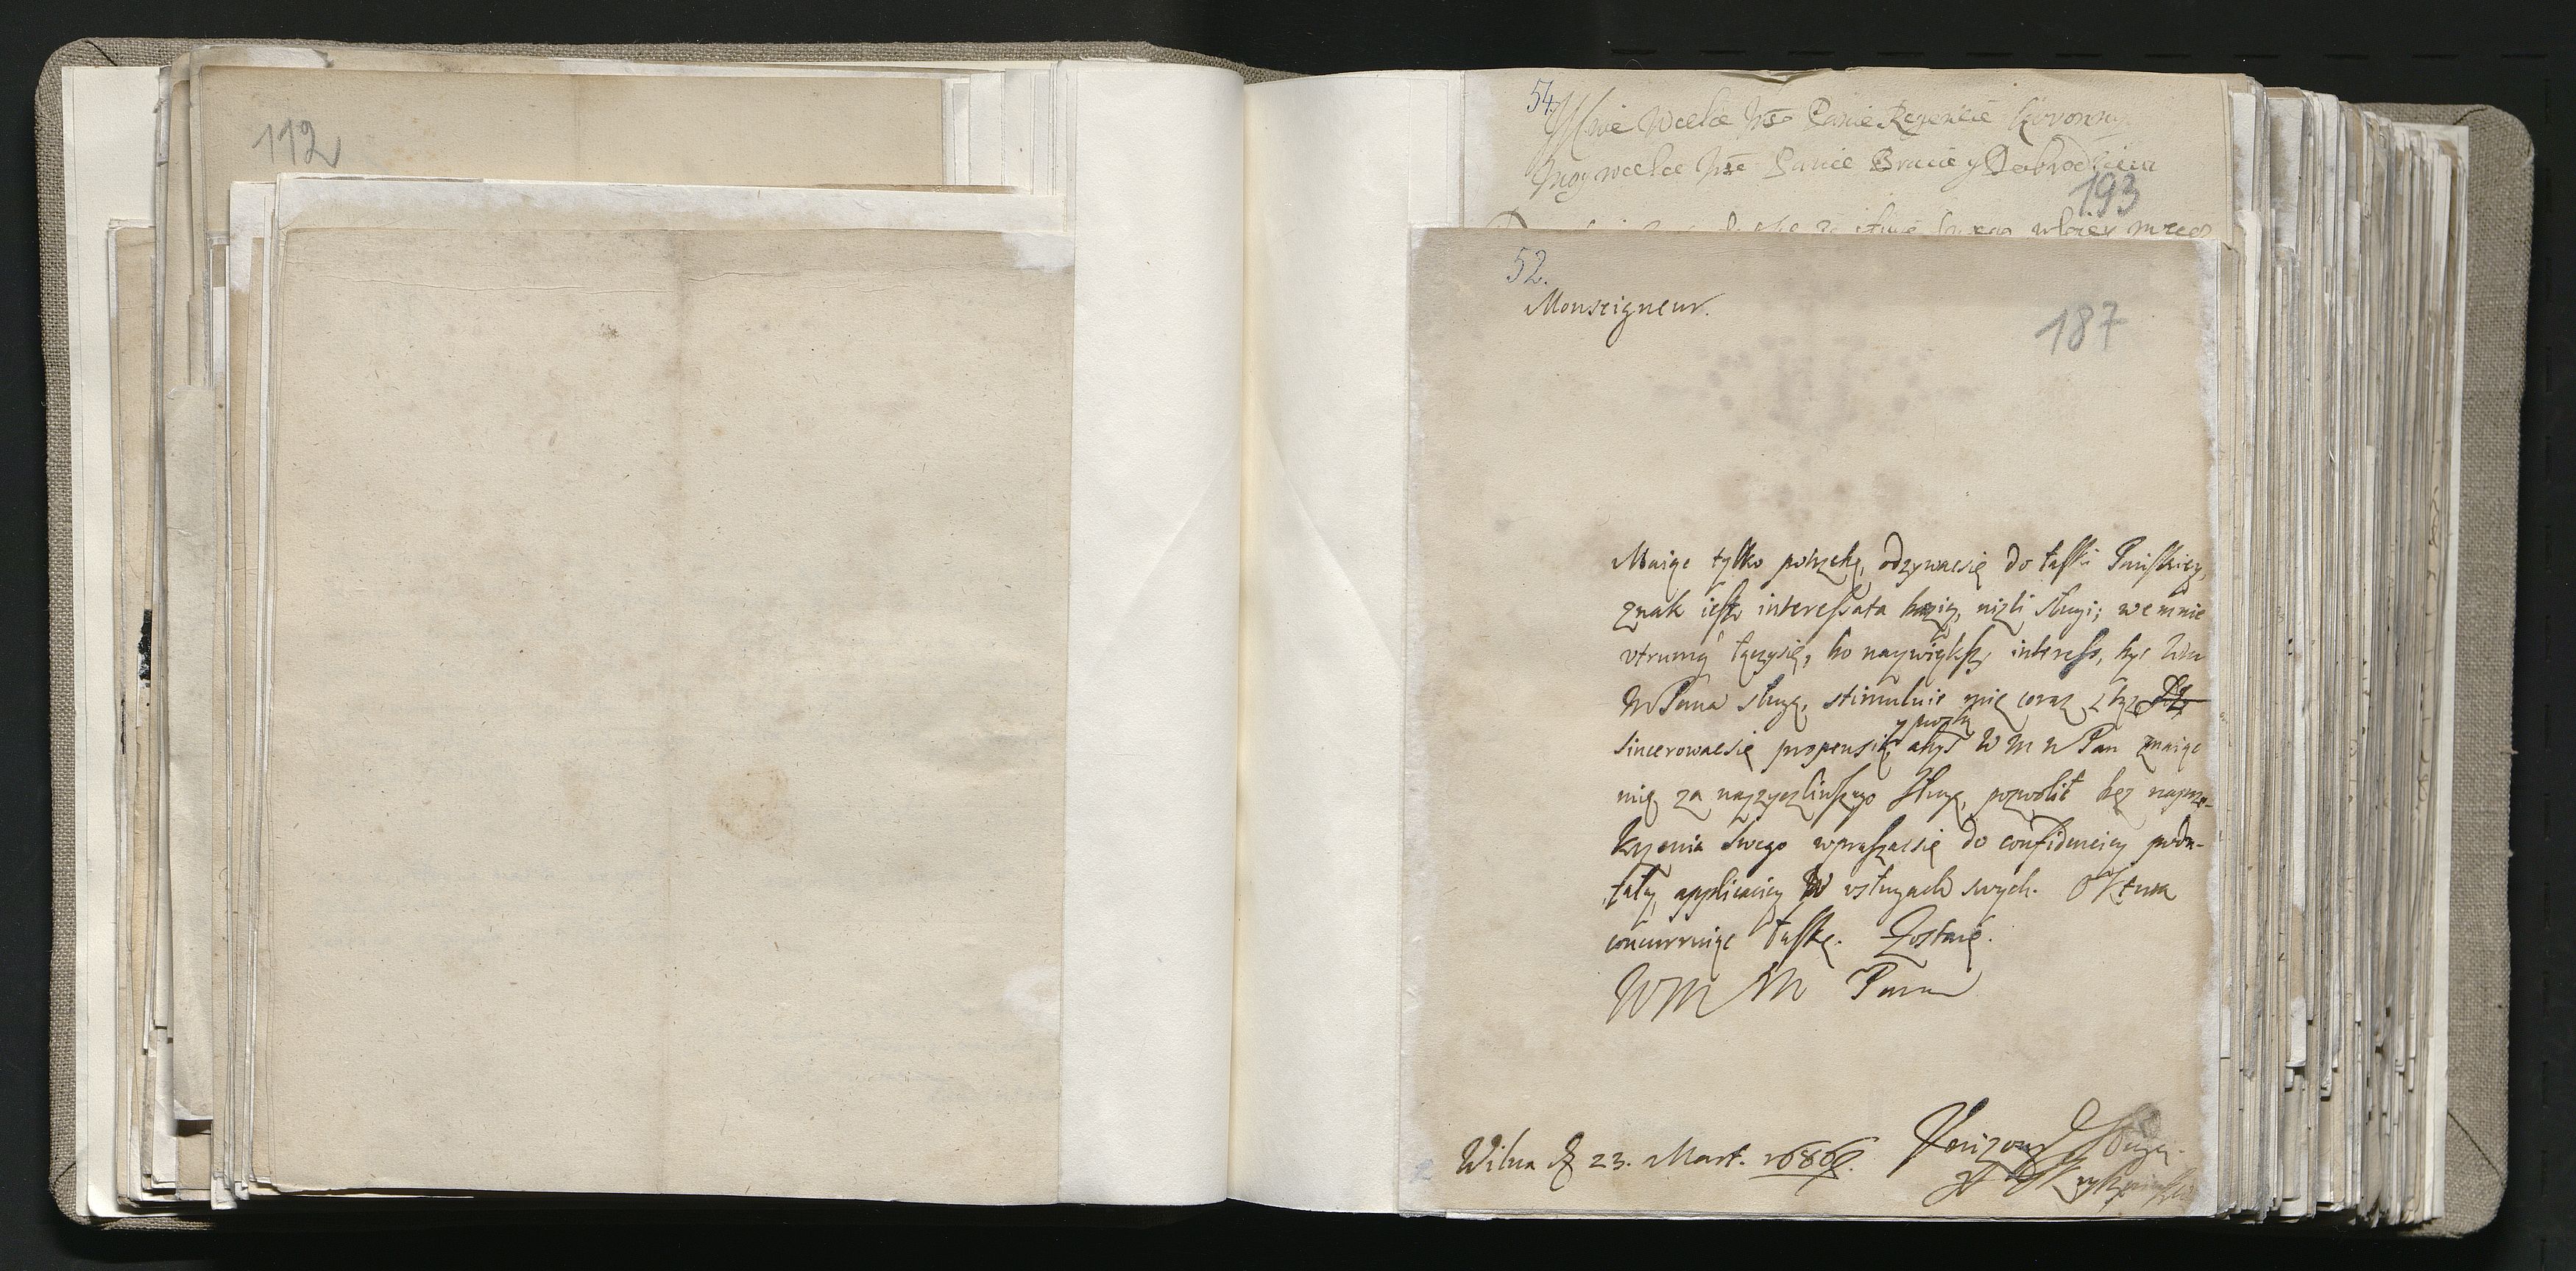 112
54.
Mnie Wielce Mśc Panie Regencie Koronny
Moy wielce Mśc Panie Bracie y Dobrodzieiu
193
52.
Monseigneur.
187
Maiąc tylko potrzebę, odzywacsię do łaski Pańskiey,
znak iest interessata barziey, niżli sługi; we mnie
utrumq łączysię, bo naywiększy interess, być Wm
M Pana sługą, stimuluie mię coraz
y proszę
sincerowacsię propensią, abyś W M M Pan znaiąc
mię za nayżyczliwszego sługę, pozwolił bez naprzy-
krzenia swego wpraszacsię do confidenciey
applicaciey w usługach swych. O Którą
concurruiąc łaskę. Zostaię.
WM M Pana
Wilna D 23. Mart. 1686.
sługa